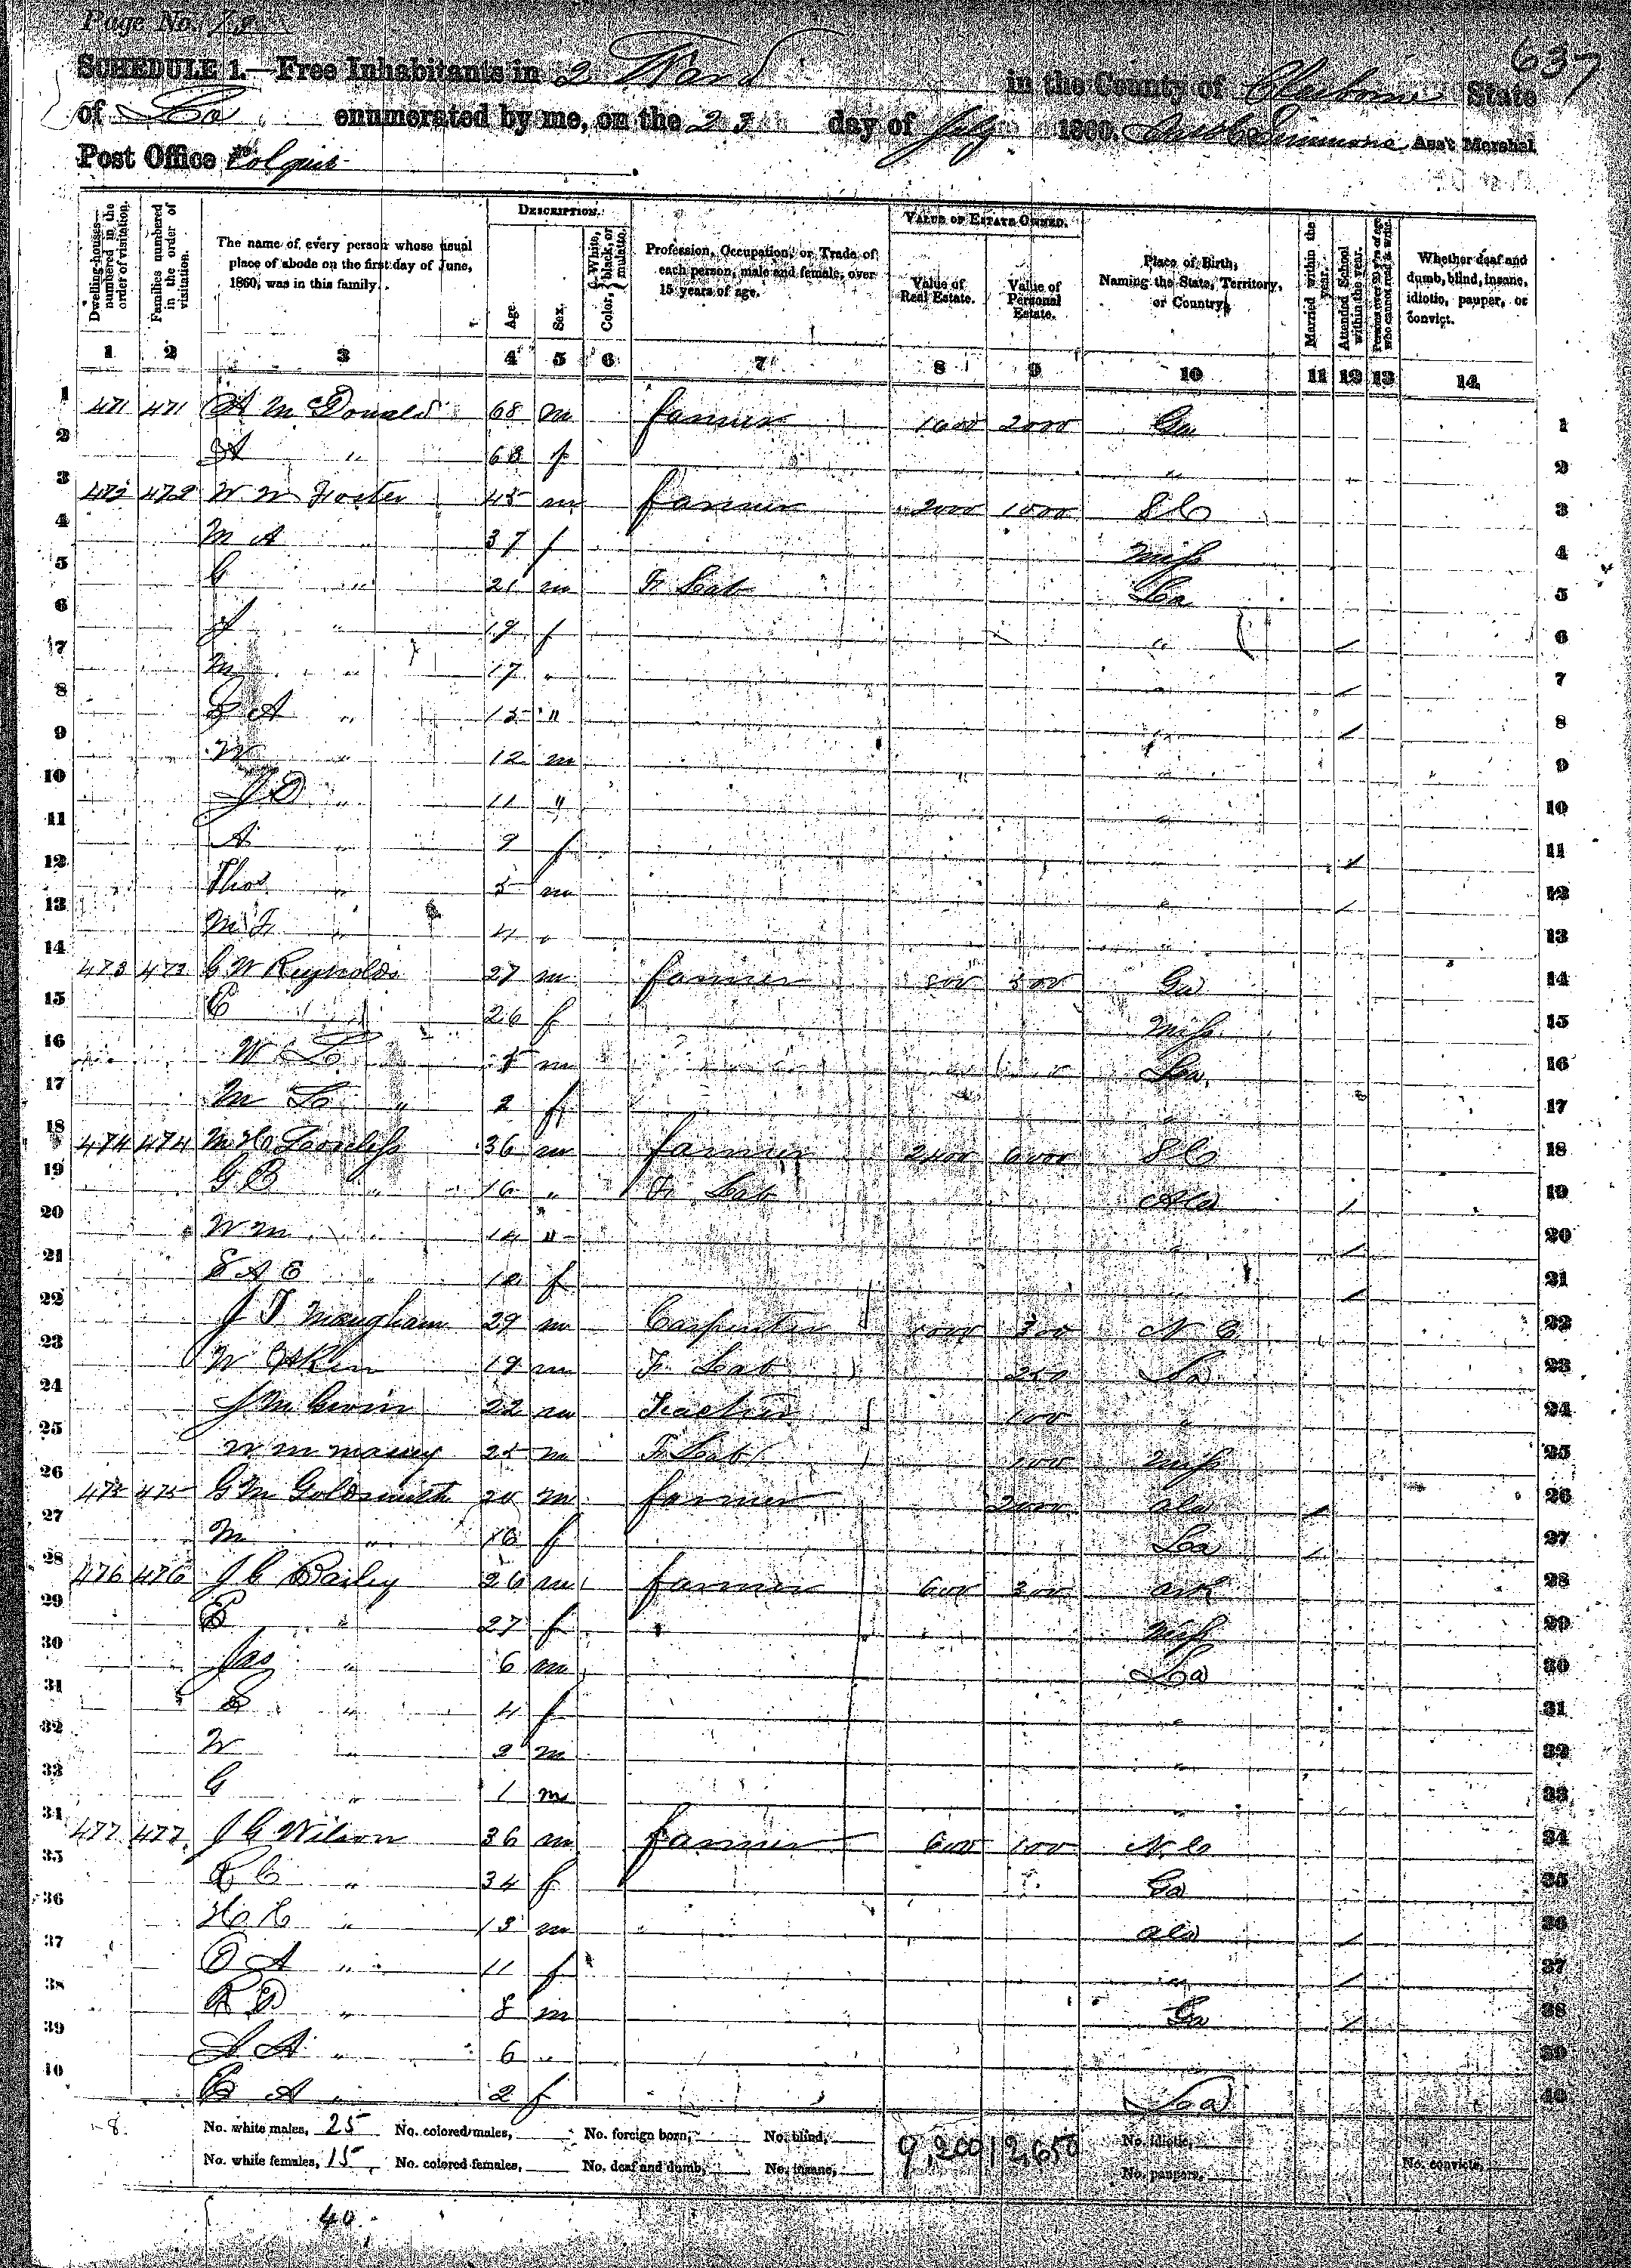 Page No.
637
SCHEDULE 1.—Free Inhabitants in 2 Ward in the County of Claiborne State
of La enumerated by me, on the 23 day of July 1860. Simmons Ass't Marshal
Post Office Colquit
DESCRIPTION. VALUE OF ESTATE OWNED.
Dwelling-houses—numbered in the order of visitation. Families numbered in the order of visitation. The name of every person whose usual place of abode on the first day of June, 1860, was in this family. Age. Sex. Color, { White, black, or mulatto. Profession, Occupation, or Trade of each person, male and female, over 15 years of age. Value of Real Estate. Value of Personal Estate. Place of Birth, Naming the State, Territory, or Country. Married within the year. Attended School within the year. Persons over 20 y'rs of age who cannot read & write. Whether deaf and dumb, blind, insane, idiotic, pauper, or convict.
1 2 3 4 5 6 7 8 9 10 11 12 13 14
1 471 471 A McDonald 68 m farmer 2000 1
2 A " 68 f " 2
3 472 472 W W Foster 45 m farmer 2000 1000 S C 3
4 M A " 37 f Miss 4
5 G " 21 m F Lab La 5
6 J " 19 f " / 6
7 M " 17 " " / 7
8 S A " 15 " " / 8
9 W " 12 m " 9
10 J D " 11 " " 10
11 A " 9 f / 11
12 Thos " 5 m " / 12
13 M F " 4 " " 13
14 473 473 G W Reynolds 27 m farmer 300 Ga 14
15 E 26 f Miss 15
16 W L m La 16
17 M L " 2 f " 17
18 474 474 M H 36 m farmer 6000 S C 18
19 G B " 16 " F Lab Ala / 19
20 W M " 14 " " / 20
21 S A E " 10 f / 21
22 J T Maugham 29 m Carpenter 300 N C 22
23 W Aken 19 m F Lab 250 La 23
24 J M 22 m Teacher 100 " 24
25 W M 25 m F Lab Miss 25
26 475 475 G M Goldsmith 20 m farmer 2000 Ala / 26
27 M " 16 f La / 27
28 476 476 J C Bailey 26 m farmer 600 300 Ark 28
29 E " 27 f Miss 29
30 Jas " 6 m La 30
31 E " 4 f " 31
32 W " 3 m " 32
33 G " 1 m " 33
34 477 477 J G Wilson 36 m farmer 600 100 N C 34
35 R C " 34 f Ga 35
36 H C " 13 m Ala / 36
37 O A " 11 f " / 37
38 R D " 8 m Ga / 38
39 S A " 6 " 39
40 E A " 2 f La 40
No. white males, 25 No. colored males, No. foreign born, No. blind, 9,200 12,650 No. idiotic,
No. white females, 15 No. colored females, No. deaf and dumb, No. insane, No. paupers, No. convicts,
40